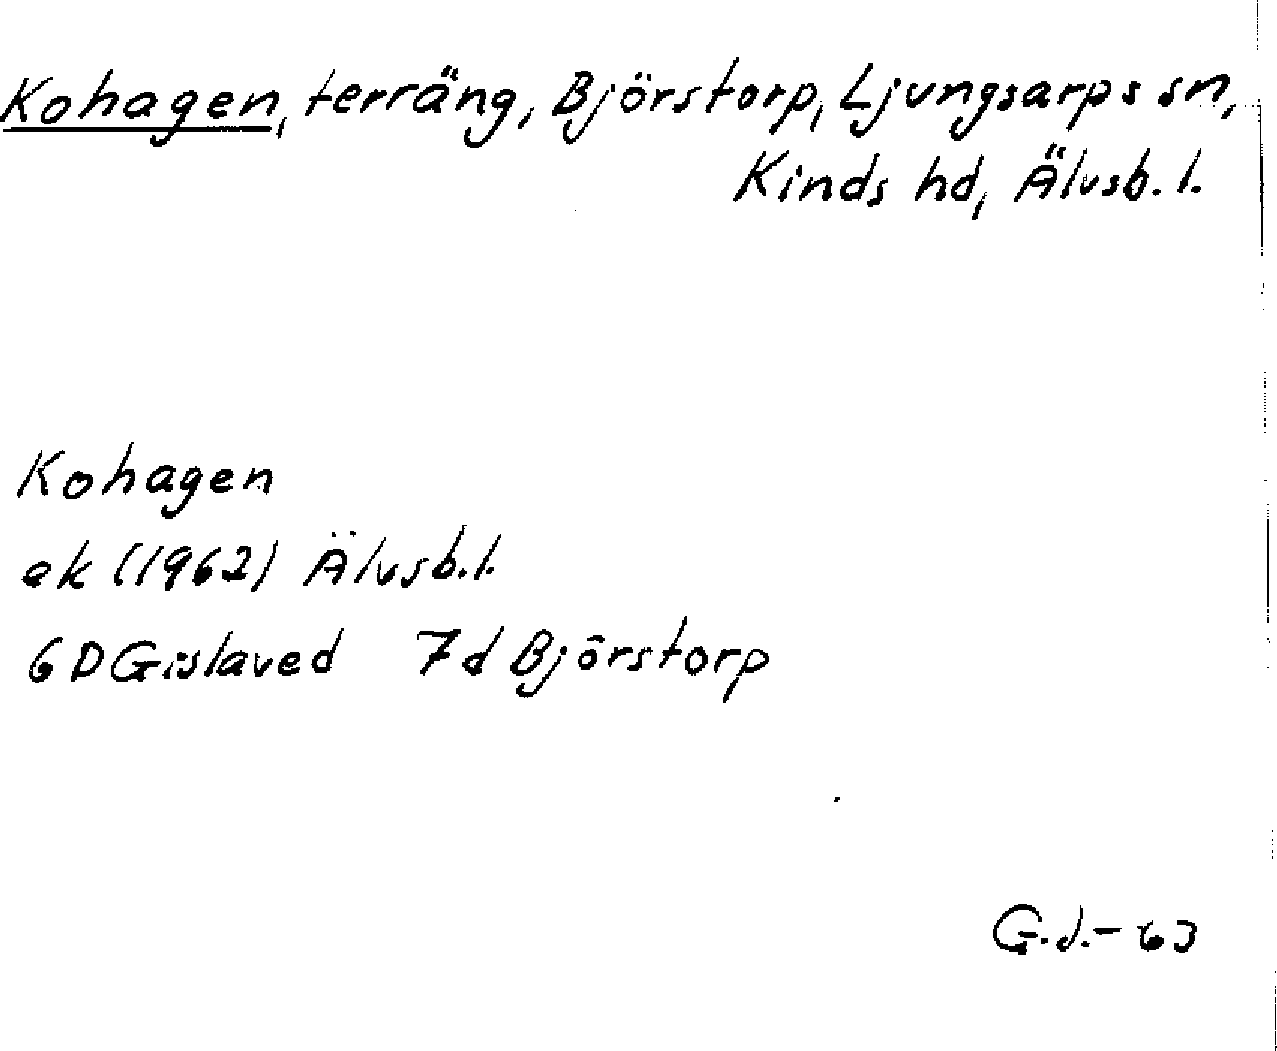 Kohagen, terräng, Björstorp, Ljungsarps sn,
Kinds hd, Älvsb. l.
Kohagen
ek (1962) Älvsb. l.
6 D Gislaved 7d Björstorp
G.J.-63